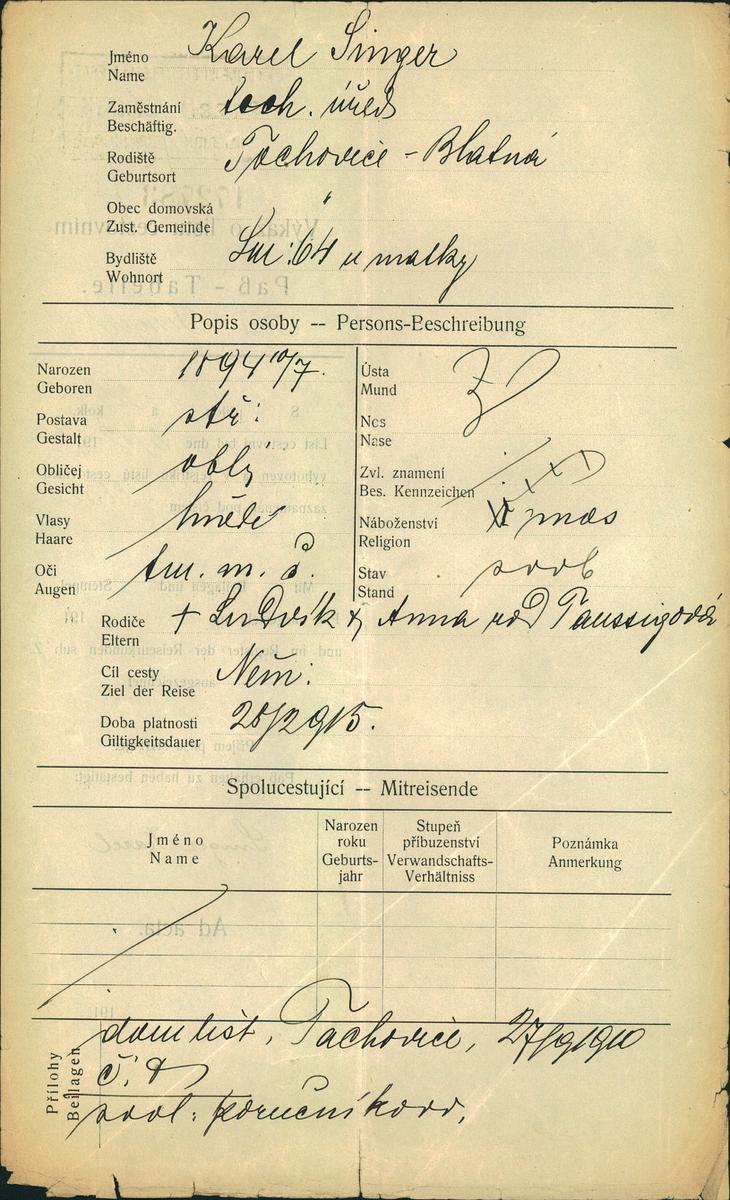 Jméno Karel Singer
Name
Zaměstnání tech. úřed
Beschäftig.
Rodiště Tochovice - Blatná
Geburtsort
Obec domovská "
Zust. Gemeinde
Bydliště Sm: 64 u matky
Wohnort
Popis osoby -- Persons-Beschreibung
Narozen 1894 10/7.
Geboren
Postava stř:
Gestalt
Obličej oblý
Gesicht
Vlasy hnědé
Haare
Oči tm. m. č.
Augen
Ústa
Mund
Nos
Nase
Zvl. znamení
Bes. Kennzeichen
Náboženství
Religion
Stav svob
Stand
Rodiče + Ludvík & Anna roD Taussigová
Eltern
Cíl cesty Něm:
Ziel der Reise
Doba platnosti 28/2 915.
Giltigkeitsdauer
Spolucestující -- Mitreisende
Jméno
Name
Narozen
roku
Geburts-
jahr
Stupeň
příbuzenství
Verwandschafts-
Verhältniss
Poznámka
Anmerkung
Přílohy
Beilagen
dom list, Tochovice, 27/9 1910
č. 8
svol: poručníkovo,
Ad acta.